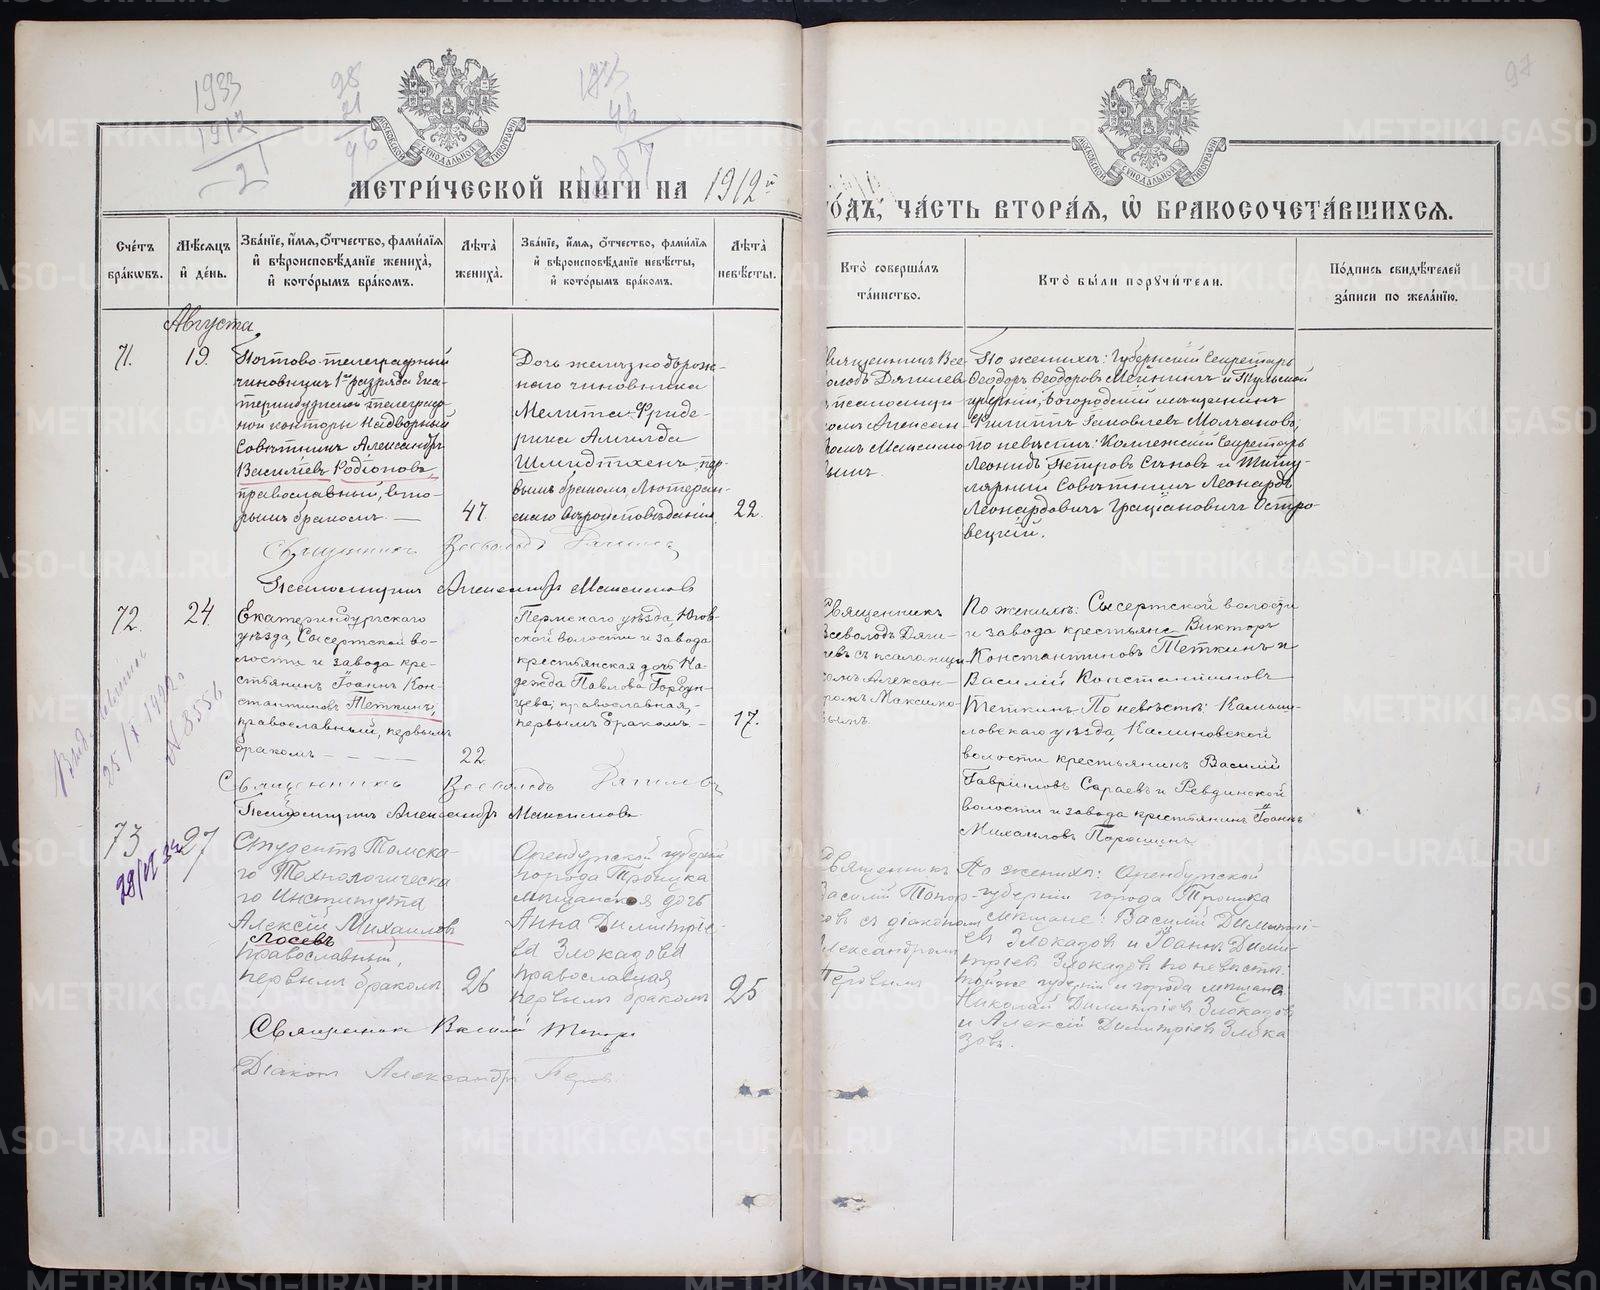 1933
1912
21
98
21
46
1933
46
1887
97
МЕТРИ́ЧЕСКОЙ КНИГИ НА 1912й
ГО́ДЪ, ЧА́СТЬ ВТОРА́Я, Ѡ҆ БРАКОСОЧЕТА́ВШИХСЯ.
МОСКОВСКОЙ СѴНОДАЛЬНОЙ ТИПОГРАФІИ
МОСКОВСКОЙ СѴНОДАЛЬНОЙ ТИПОГРАФІИ
Сче́тъ бра́кωвъ.
Мѣ́сяцъ й де́нь.
Зва́нїе, и́мя, ѻ҆́тчество, фами́лїя
й вѣроисповѣ́данїе жениха̀,
й кото́рымъ бра́комъ.
Лѣта̀ жениха̀.
Зва́нїе, и́мя, ѻ҆́тчество, фами́лїя
й вѣроисповѣ́данїе невѣ́сты,
й кото́рымъ бра́комъ.
Лѣта̀ невѣ́сты.
Кто̀ соверша́лъ
та́инство.
Кто̀ бы́ли порꙋчи́тели.
По́дпись свидѣ́телей
за́писи по жела́нїю.
Августа
71.
19.
Почтово-телеграфный
чиновникъ 1го разряда Ека-
теринбургской телеграф-
ной конторы Надворный
Совѣтникъ Александръ
Василіевъ Родіоновъ,
православный, вто-
рымъ бракомъ. —
47.
Дочь желѣзнодорож-
наго чиновника
Мелита-Фриде-
рика Амилда
Шмидтихенъ, пер-
вымъ бракомъ, Лютеран-
скаго вѣроисповѣданія.
22.
Священникъ Все-
володъ Дягилевъ
съ псаломщи-
комъ Алексан-
дромъ Максимо-
вымъ
По женихѣ: Губернскій Секретарь
Ѳеодоръ Ѳеодоровъ Мейнинъ и Тульской
губерніи, Богородскій мѣщанинъ
Филиппъ Яковлевъ Молчановъ,
по невѣстѣ: Коллежскій Секретарь
Леонидъ Петровъ Сыновъ и Титу-
лярный Совѣтникъ Леонардъ
Леонардовичъ Граціановичъ Остро-
вецкій.
Священникъ Всеволодъ Дягилевъ
Псаломщикъ Александръ Максимовъ
72.
24.
Екатеринбургскаго
уѣзда, Сысертской во-
лости и завода кре-
стьянинъ Іоаннъ Кон-
стантиновъ Теткинъ,
православный, первымъ
бракомъ — — — —
22
Пермскаго уѣзда, Югов-
ской волости и завода
крестьянская дочь На-
дежда Павлова Городн-
цева, православная,
первымъ бракомъ. —
17.
Священникъ
Всеволодъ Дяги-
левъ съ псаломщи-
комъ Алексан-
дромъ Максимо-
вымъ.
По женихѣ: Сысертской волости
и завода крестьяне Викторъ
Константиновъ Теткинъ и
Василій Константиновъ
Теткинъ. По невѣстѣ: Камыш-
ловскаго уѣзда, Калиновской
волости крестьянинъ Василій
Гавриловъ Сараевъ и Ревдинской
волости и завода крестьянинъ Іоаннъ
Михаиловъ Порошинъ.
25/IX 1942 г
N 8556
Священникъ Всеволодъ Дягилевъ
Псаломщикъ Александръ Максимовъ
73
27
28/VI 34
Студентъ Томска-
го Технологическа
го Института
Алексій Михаиловъ
Лосевъ
православный,
первымъ бракомъ
26
Оренбургской губерніи
города Троицка
мѣщанская дочь
Анна Димитріе-
ва Злоказова
православная
первымъ бракомъ
25
Священникъ
Василій Топор-
ковъ съ діакономъ
Александромъ
Перовымъ
По женихѣ: Оренбургской
губерніи города Троицка
мѣщане: Василій Димитрі-
евъ Злоказовъ и Іоаннъ Дими-
тріевъ Злоказовъ по невѣстѣ:
тойже губерніи и города мѣщане
Николай Димитріевъ Злоказовъ
и Алексій Димитріевъ Злока
зовъ.
Священникъ Василій Топорк
Діаконъ Александръ Перовъ
METRIKI.GASO-URAL.RU